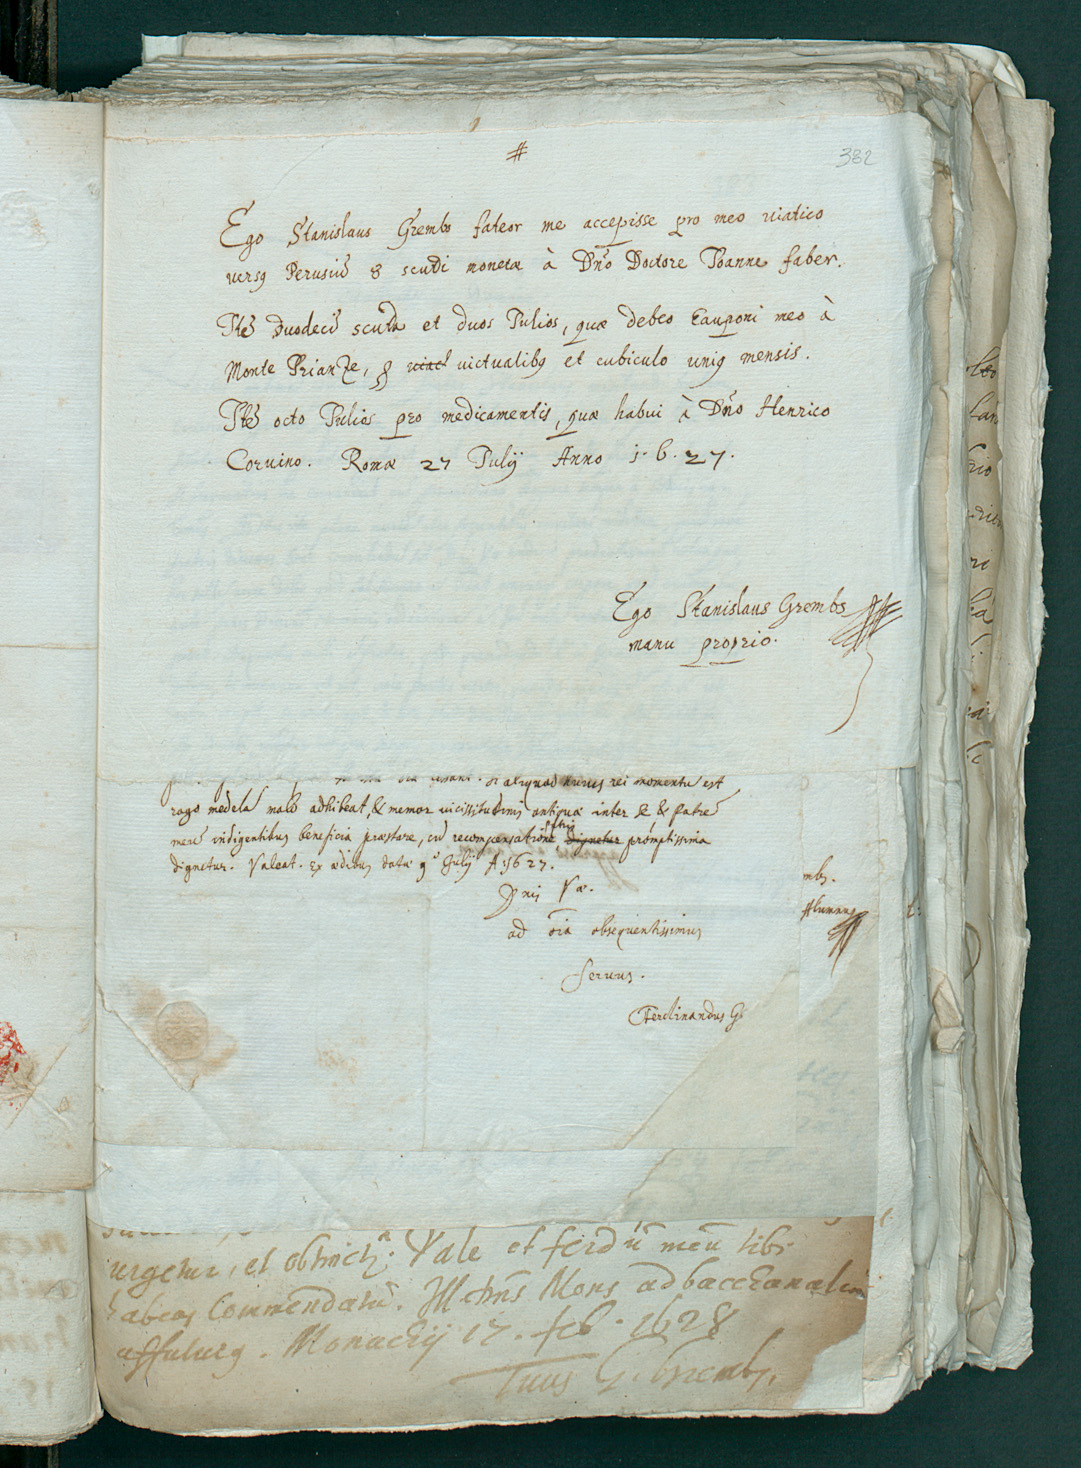 #
382
Ego Stanislaus Grembs fateor me accepisse pro meo viatico
versq Perusiũ 8 scudi monetæ à Dño Doctore Joanne faber.
Itẽ duodecĩ scuda et duos Julios, quæ debeo Cauponi meo à
Monte Brianze, p viati victualibq et cubiculo uniq mensis.
Itẽ octo Julios pro medicamentis, quæ habui à Dño Henrico
Coruino. Romæ 27 Julij Anno 1.6.27.
Ego Stanislaus Grembs
manu proprio.
si aliquod huius rei momentũ est
rogo medelã malo adhibeat, & memor vicissitudinis antiquæ inter se & patrẽ
meũ indigentibus beneficia præstare, cũ recompensatione dignetur promptissima
dignetur. Valeat. Ex ædibus datæ 9 Julij A 1627.
Dnis Væ.
ad oĩa obsequentissimus
servus.
Ferdinandus G
mbs.
Alumnus
urgetur, et obstrict. Vale et ferdũ meũ tibi
habeas Commendatũ. Mons ad bacchanalia
Monachij 17. feb. 1628
Tuus G. Grembs.